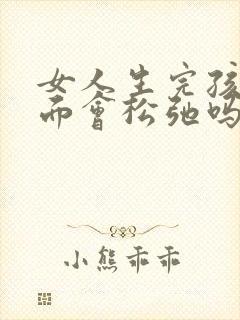 女人生完孩
而會松弛吗
小熊乖乖